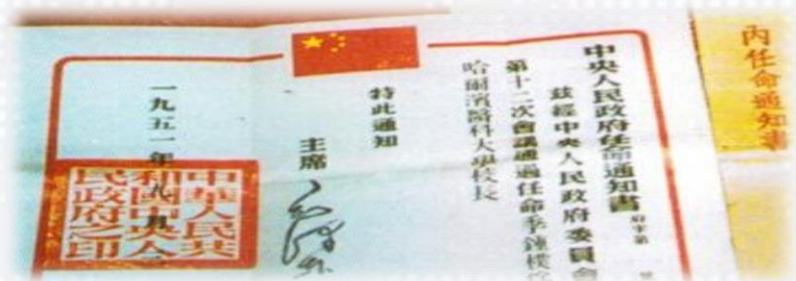 内任命通知書
中央人民政府任命通知書 府字第 號
茲經中央人民政府委員會
第十二次會議通過任命季鍾樸爲
哈爾濱醫科大學校長
特此通知
主席
一九五一年
中華人民共和國中央人民政府之印